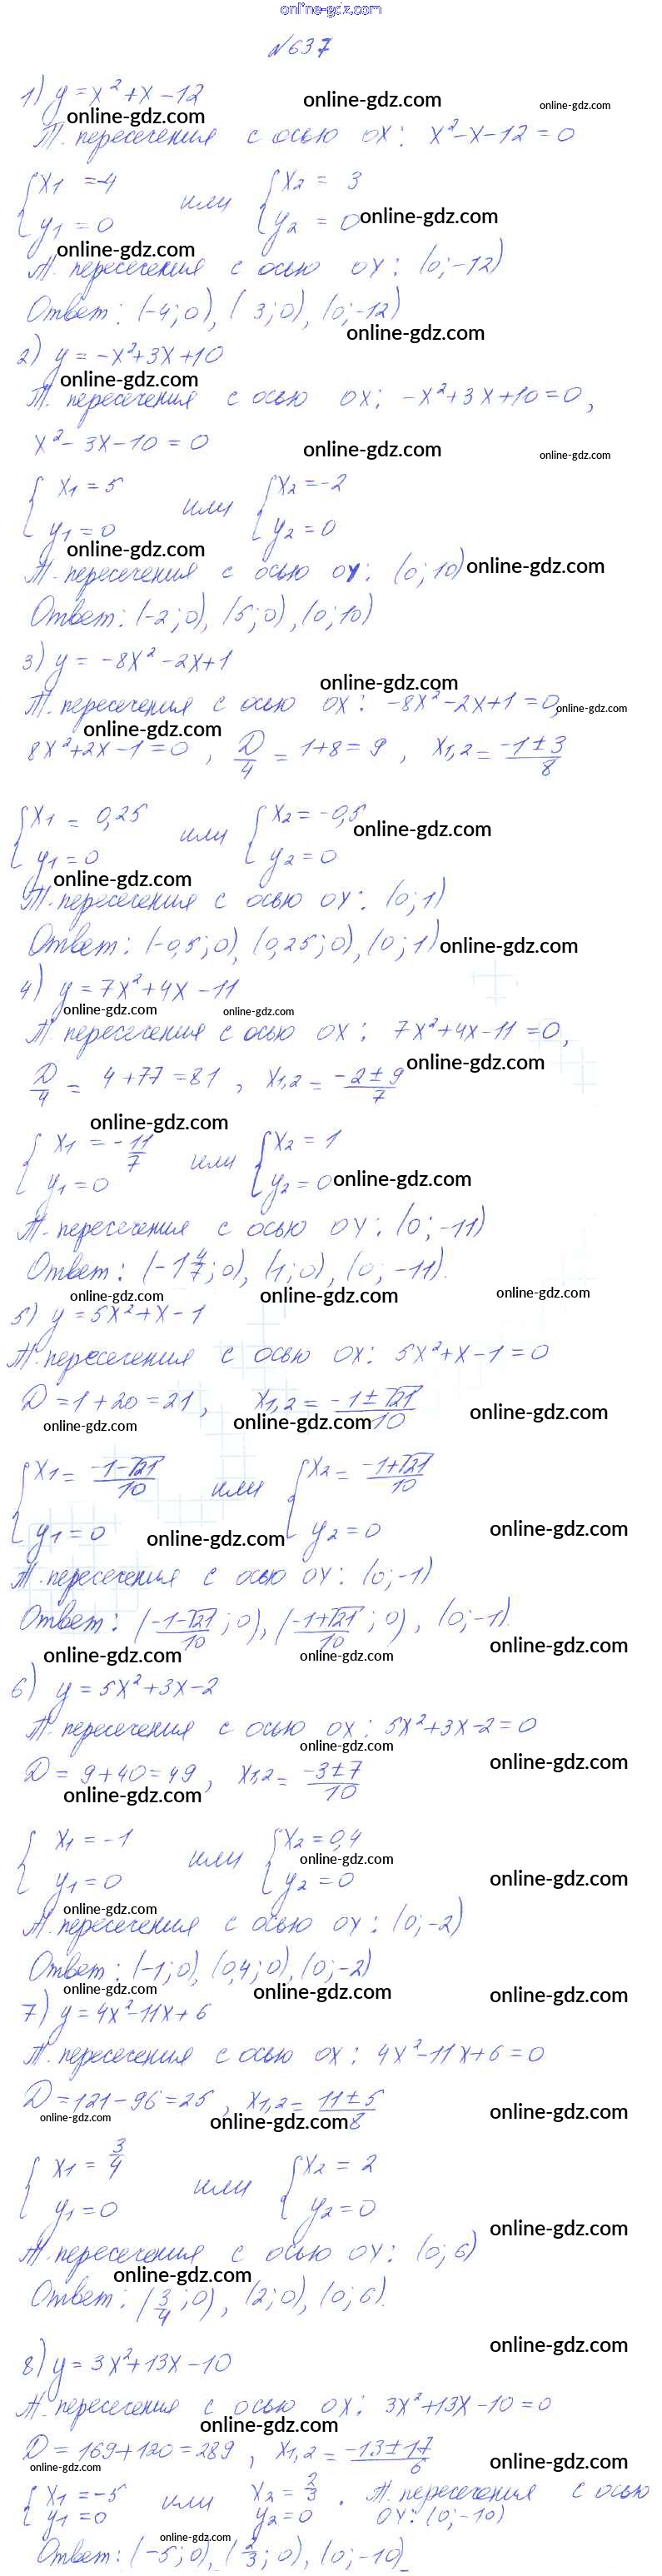 online-gdz.com
№637
1) y = x² + x - 12
online-gdz.com online-gdz.com online-gdz.com
Т. пересечения с осью OX: x² - x - 12 = 0
{x₁ = -4 или {x₂ = 3
y₁ = 0 y₂ = 0 online-gdz.com
online-gdz.com
Т. пересечения с осью OY: (0; -12)
Ответ: (-4; 0), (3; 0), (0; -12)
online-gdz.com
2) y = -x² + 3x + 10
online-gdz.com
Т. пересечения с осью OX: -x² + 3x + 10 = 0,
x² - 3x - 10 = 0
online-gdz.com online-gdz.com
{x₁ = 5 или {x₂ = -2
y₁ = 0 y₂ = 0
online-gdz.com
Т. пересечения с осью OY: (0; 10) online-gdz.com
Ответ: (-2; 0), (5; 0), (0; 10)
3) y = -8x² - 2x + 1
online-gdz.com
Т. пересечения с осью OX: -8x² - 2x + 1 = 0, online-gdz.com
online-gdz.com
8x² + 2x - 1 = 0, D/4 = 1 + 8 = 9, x₁,₂ = (-1 ± 3)/8
{x₁ = 0,25 или {x₂ = -0,5
y₁ = 0 y₂ = 0 online-gdz.com
online-gdz.com
Т. пересечения с осью OY: (0; 1)
Ответ: (-0,5; 0), (0,25; 0), (0; 1) online-gdz.com
4) y = 7x² + 4x - 11
online-gdz.com online-gdz.com
Т. пересечения с осью OX: 7x² + 4x - 11 = 0,
online-gdz.com
D/4 = 4 + 77 = 81, x₁,₂ = (-2 ± 9)/7
online-gdz.com
{x₁ = -11/7 или {x₂ = 1
y₁ = 0 y₂ = 0 online-gdz.com
Т. пересечения с осью OY: (0; -11)
Ответ: (-1 4/7; 0), (1; 0), (0; -11).
online-gdz.com online-gdz.com online-gdz.com
5) y = 5x² + x - 1
Т. пересечения с осью OX: 5x² + x - 1 = 0
D = 1 + 20 = 21, x₁,₂ = (-1 ± √21)/10
online-gdz.com online-gdz.com online-gdz.com
{x₁ = (-1 - √21)/10 или {x₂ = (-1 + √21)/10
y₁ = 0 online-gdz.com y₂ = 0 online-gdz.com
Т. пересечения с осью OY: (0; -1)
Ответ: ((-1 - √21)/10; 0), ((-1 + √21)/10; 0), (0; -1).
online-gdz.com online-gdz.com online-gdz.com
6) y = 5x² + 3x - 2
Т. пересечения с осью OX: 5x² + 3x - 2 = 0
online-gdz.com online-gdz.com
D = 9 + 40 = 49, x₁,₂ = (-3 ± 7)/10
online-gdz.com
{x₁ = -1 или {x₂ = 0,4
online-gdz.com online-gdz.com
y₁ = 0 y₂ = 0
online-gdz.com
Т. пересечения с осью OY: (0; -2)
Ответ: (-1; 0), (0,4; 0), (0; -2)
online-gdz.com online-gdz.com online-gdz.com
7) y = 4x² - 11x + 6
Т. пересечения с осью OX: 4x² - 11x + 6 = 0
D = 121 - 96 = 25, x₁,₂ = (11 ± 5)/8
online-gdz.com online-gdz.com online-gdz.com
{x₁ = 3/4 или {x₂ = 2
y₁ = 0 y₂ = 0
online-gdz.com
Т. пересечения с осью OY: (0; 6)
online-gdz.com
Ответ: (3/4; 0), (2; 0), (0; 6).
online-gdz.com
8) y = 3x² + 13x - 10
Т. пересечения с осью OX: 3x² + 13x - 10 = 0
online-gdz.com
D = 169 + 120 = 289, x₁,₂ = (-13 ± 17)/6
online-gdz.com online-gdz.com
{x₁ = -5 или x₂ = 2/3. Т. пересечения с осью
y₁ = 0 y₂ = 0 OY: (0; -10)
online-gdz.com
Ответ: (-5; 0), (2/3; 0), (0; -10)